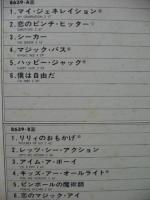 8639-A面
1. マイ・ジェネレイション
MY GENERATION 3:17
2. 恋のピンチ・ヒッター
SUBSTITUTE 3:47
3. シーカー
THE SEEKER 3:11
4. マジック・バス
MAGIC BUS
5. ハッピー・ジャック
HAPPY JACK 2:12
6. 僕は自由だ
I'M FREE
8639-B面
1. リリィのおもかげ
PICTURES OF LILY
2. レッツ・シー・アクション
LET'S SEE ACTION
3. アイム・ア・ボーイ
I'M A BOY
4. キッズ・アー・オールライト
5. ピンボールの魔術師
6. 恋のマジック・アイ